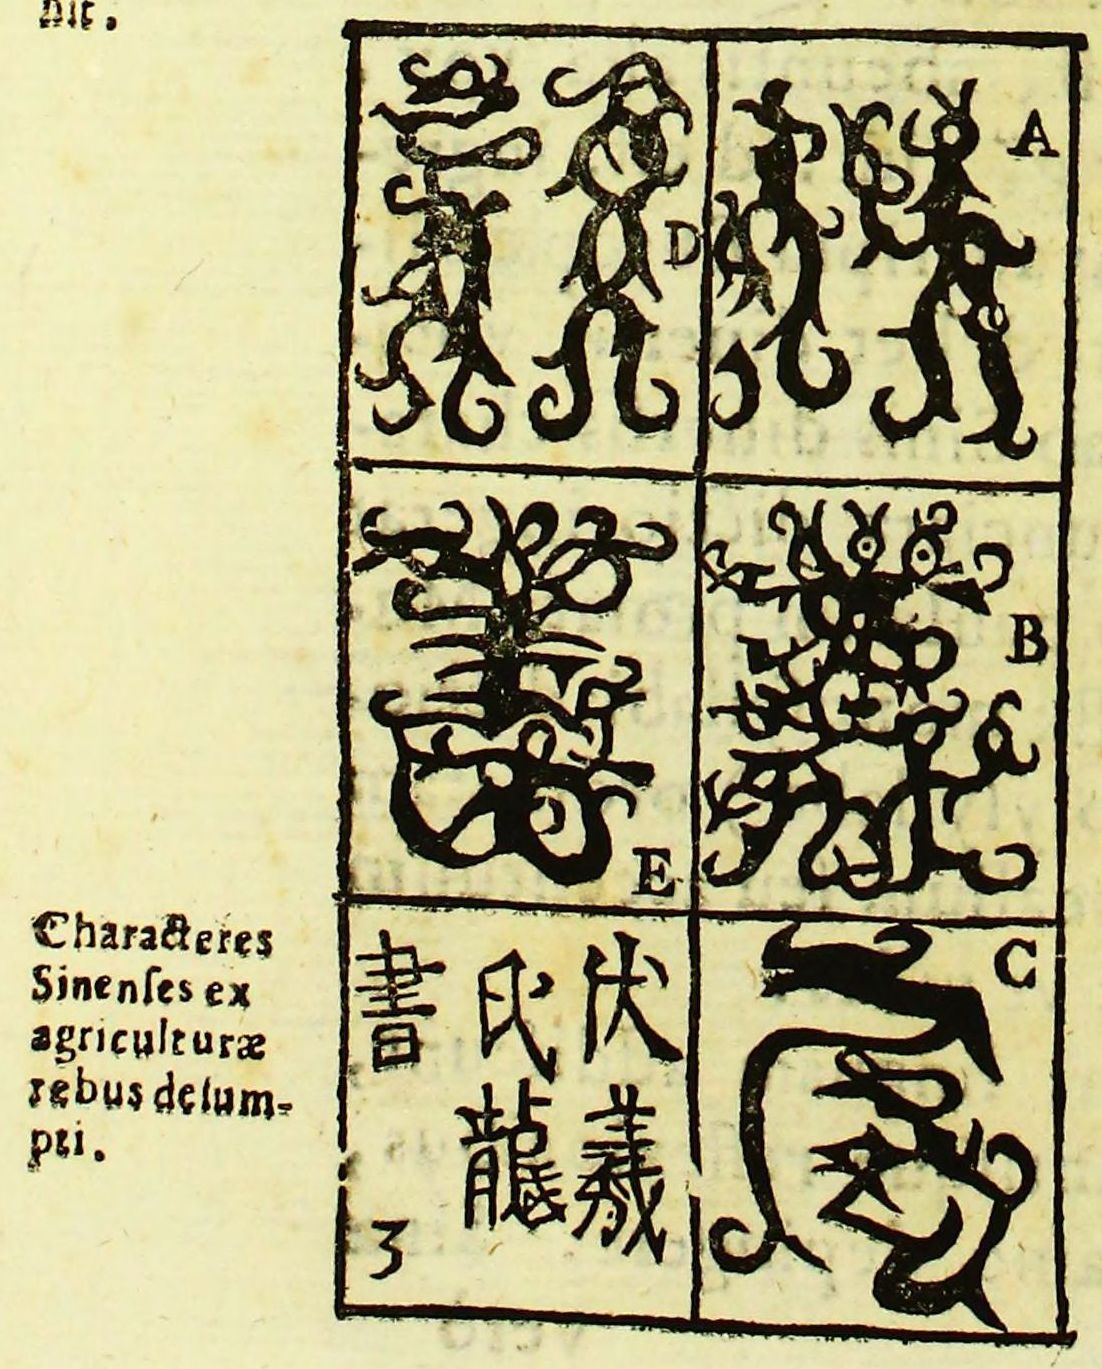 Characteres
Sinenſes ex
agriculturæ
rebus deſum-
pti.
A
D
B
E
C
伏羲
氏龍
書
3